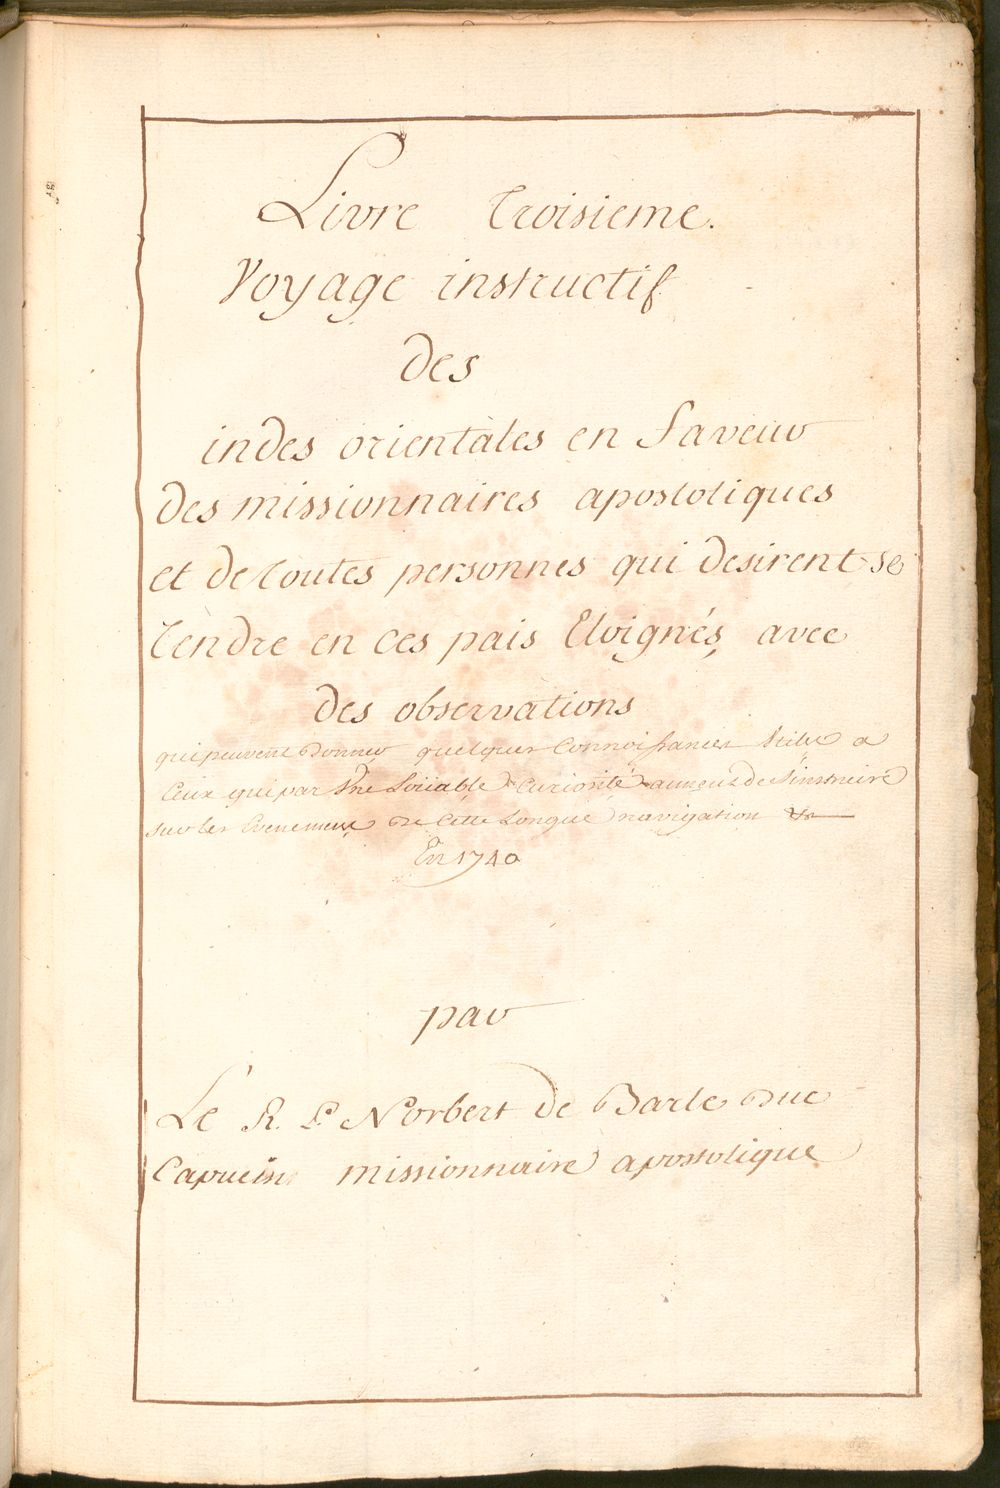 Livre Troisieme.
Voyage instructif
des
indes orientales en faveur
des missionnaires apostoliques
et de toutes personnes qui desirent se
rendre en ces pais Eloignés, avec
des observations
qui peuvent donner quelques connoissances utiles a
Ceux qui par une loüable curiosité aiment de s'instruire
sur les Evenemens de cette longue navigation &c
En 1740
par
Le R. P. Norbert de Barle Duc
Capucin missionnaire apostolique